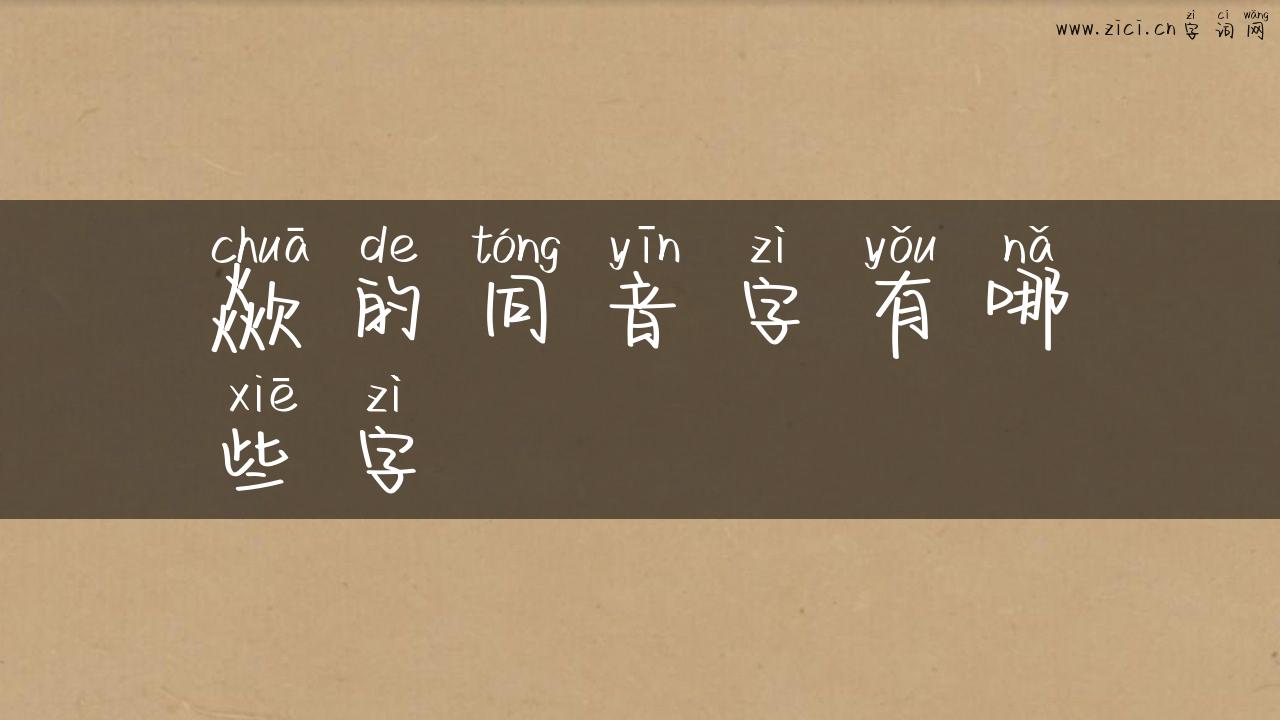 www.zici.cn 字词网
zì cí wǎng
chuā de tóng yīn zì yǒu nǎ
欻的同音字有哪
xiē zì
些字